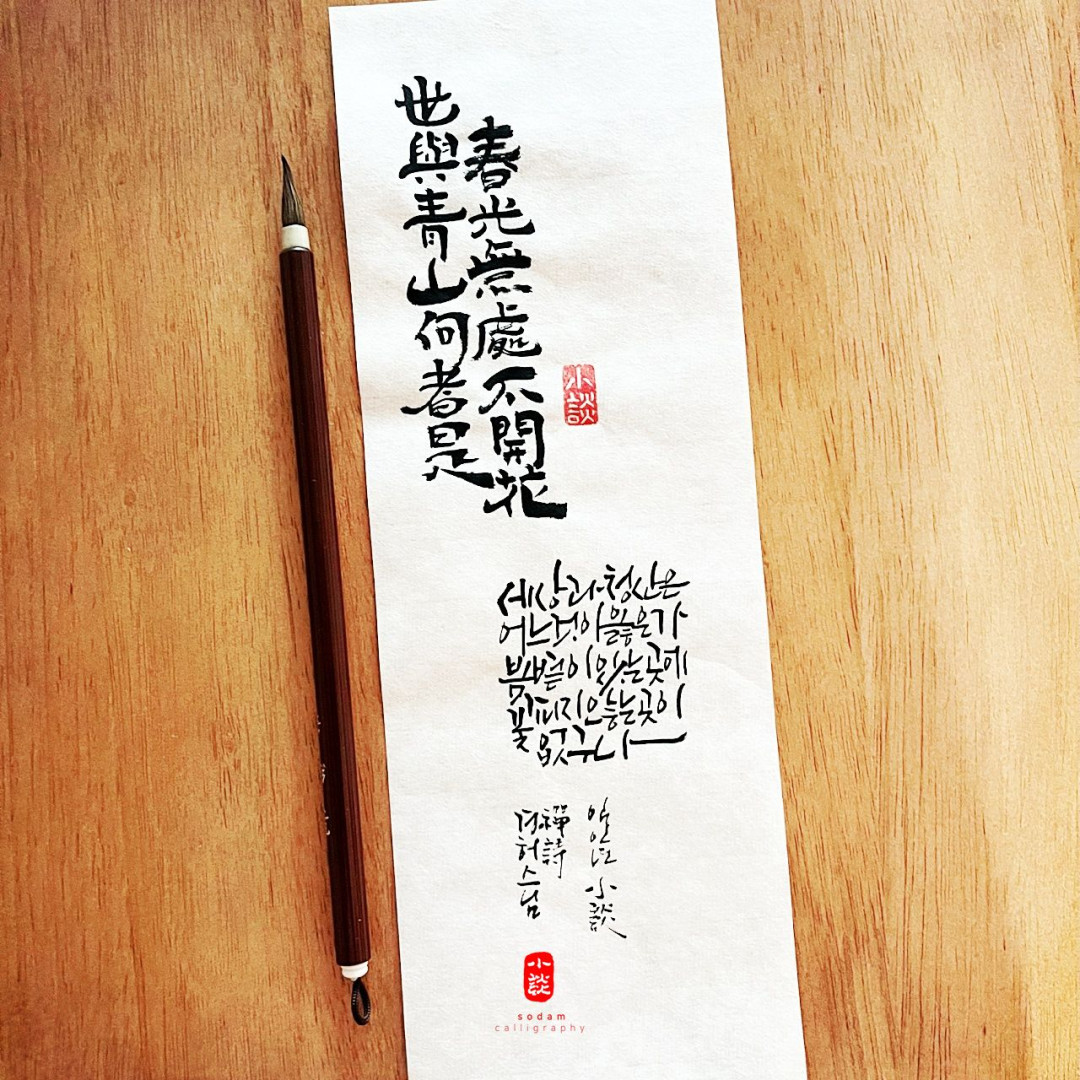 世與青山何者是
春光無處不開花
小談
세상과 청산은
어느것이 옳은가
봄볕이 있는 곳에
꽃피지 않는 곳이
없구나
경허스님
禪詩
小談
小談
sodam
calligraphy